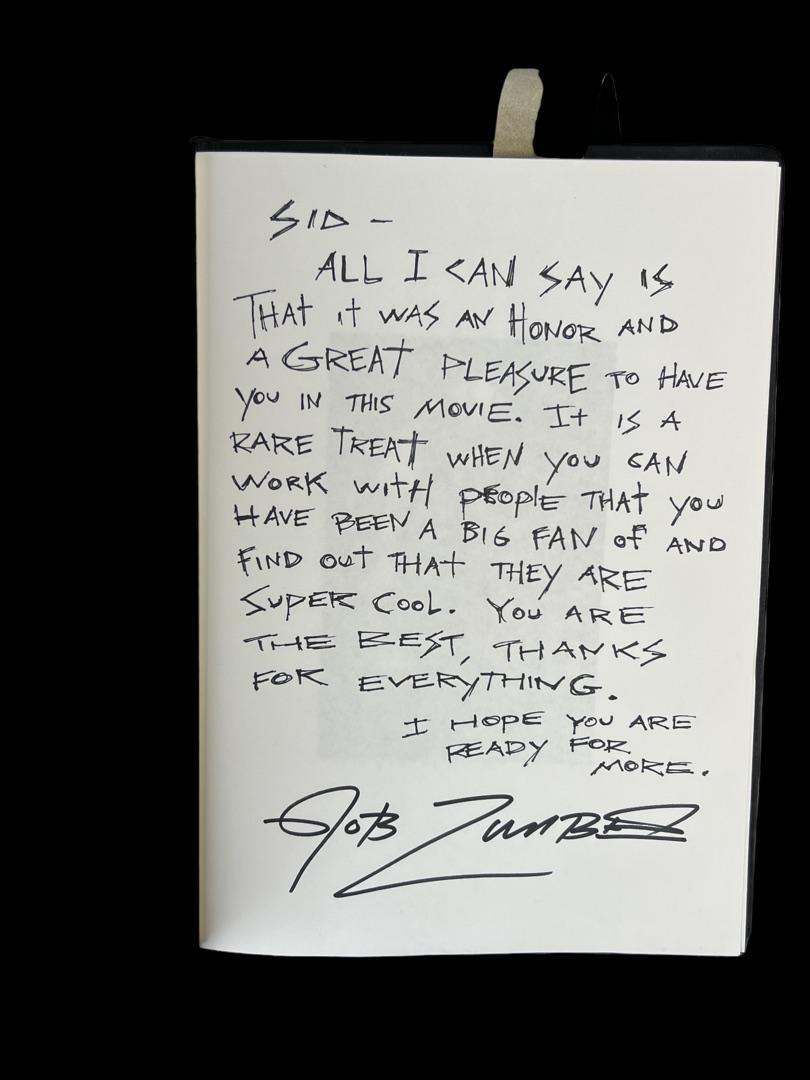 SID -
ALL I CAN SAY IS
THAt it WAS AN HONOR AND
A GREAT PLEASURE TO HAVE
YOU IN THIS MOVIE. It IS A
RARE TREAT WHEN YOU CAN
WORK WitH PEOPlE THAt YOU
HAVE BEEN A BIG FAN of AND
FIND OUt THAt THEY ARE
SUPER COOL. YOU ARE
THE BEST, THANKS
FOR EVERYTHING.
I HOPE YOU ARE
READY FOR
MORE.
ROB ZOMBIE